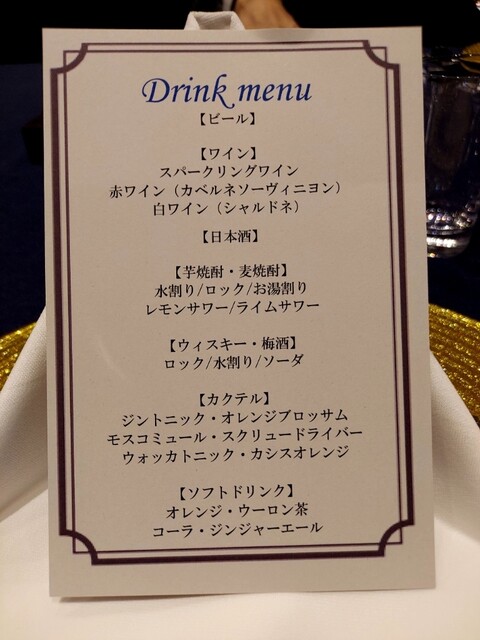 Drink menu
【ビール】
【ワイン】
スパークリングワイン
赤ワイン（カベルネソーヴィニヨン）
白ワイン（シャルドネ）
【日本酒】
【芋焼酎・麦焼酎】
水割り/ロック/お湯割り
レモンサワー/ライムサワー
【ウィスキー・梅酒】
ロック/水割り/ソーダ
【カクテル】
ジントニック・オレンジブロッサム
モスコミュール・スクリュードライバー
ウォッカトニック・カシスオレンジ
【ソフトドリンク】
オレンジ・ウーロン茶
コーラ・ジンジャーエール